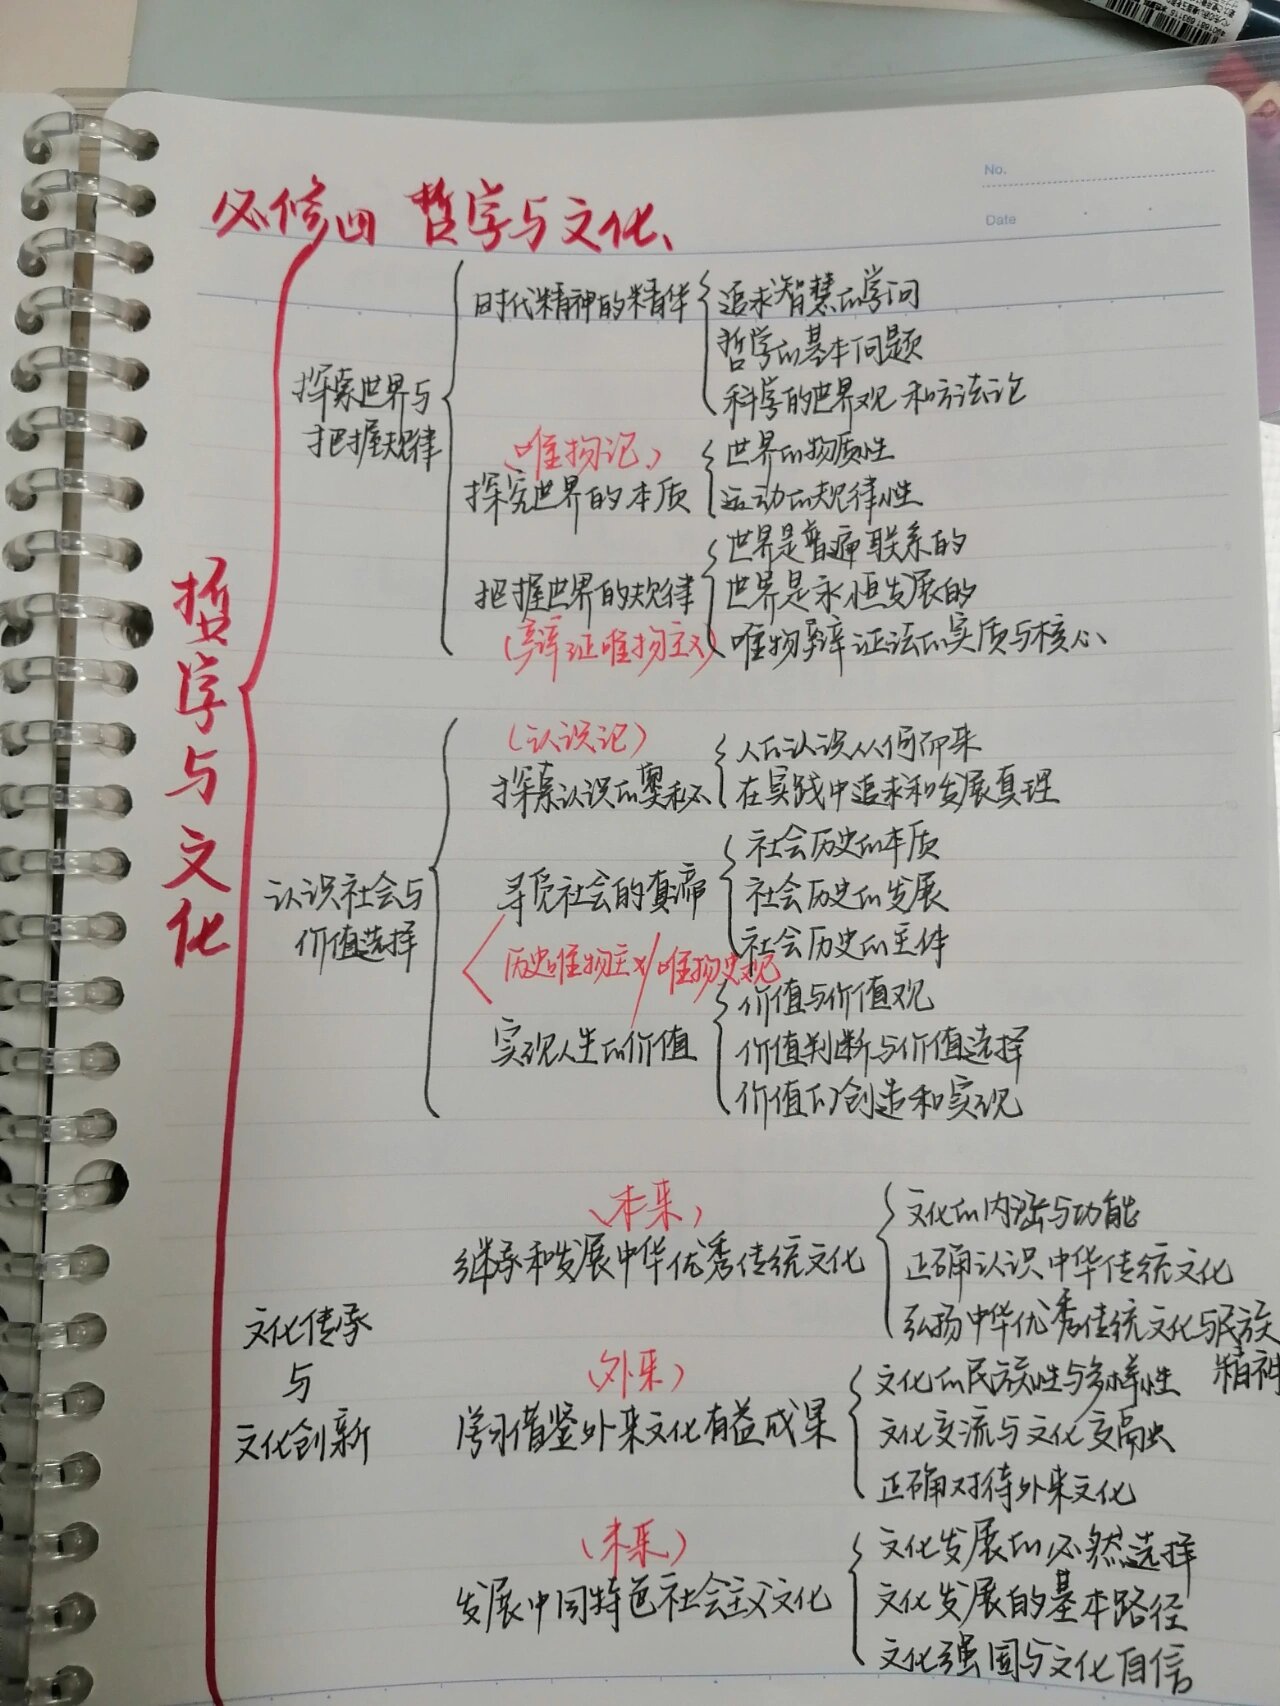 No.
Date
必修四 哲学与文化
哲学与文化
探索世界与
把握规律
时代精神的精华
追求智慧的学问
哲学的基本问题
科学的世界观和方法论
(唯物论)
探究世界的本质
世界的物质性
运动的规律性
把握世界的规律
(辩证唯物主义)
世界是普遍联系的
世界是永恒发展的
唯物辩证法的实质与核心
认识社会与
价值选择
(认识论)
探索认识的奥秘
人的认识从何而来
在实践中追求和发展真理
寻觅社会的真谛
社会历史的本质
社会历史的发展
社会历史的主体
历史唯物主义/唯物史观
实现人生的价值
价值与价值观
价值判断与价值选择
价值的创造和实现
文化传承
与
文化创新
(本来)
继承和发展中华优秀传统文化
文化的内涵与功能
正确认识中华传统文化
弘扬中华优秀传统文化与民族
精神
(外来)
学习借鉴外来文化有益成果
文化的民族性与多样性
文化交流与文化交融
正确对待外来文化
(未来)
发展中国特色社会主义文化
文化发展的必然选择
文化发展的基本路径
文化强国与文化自信